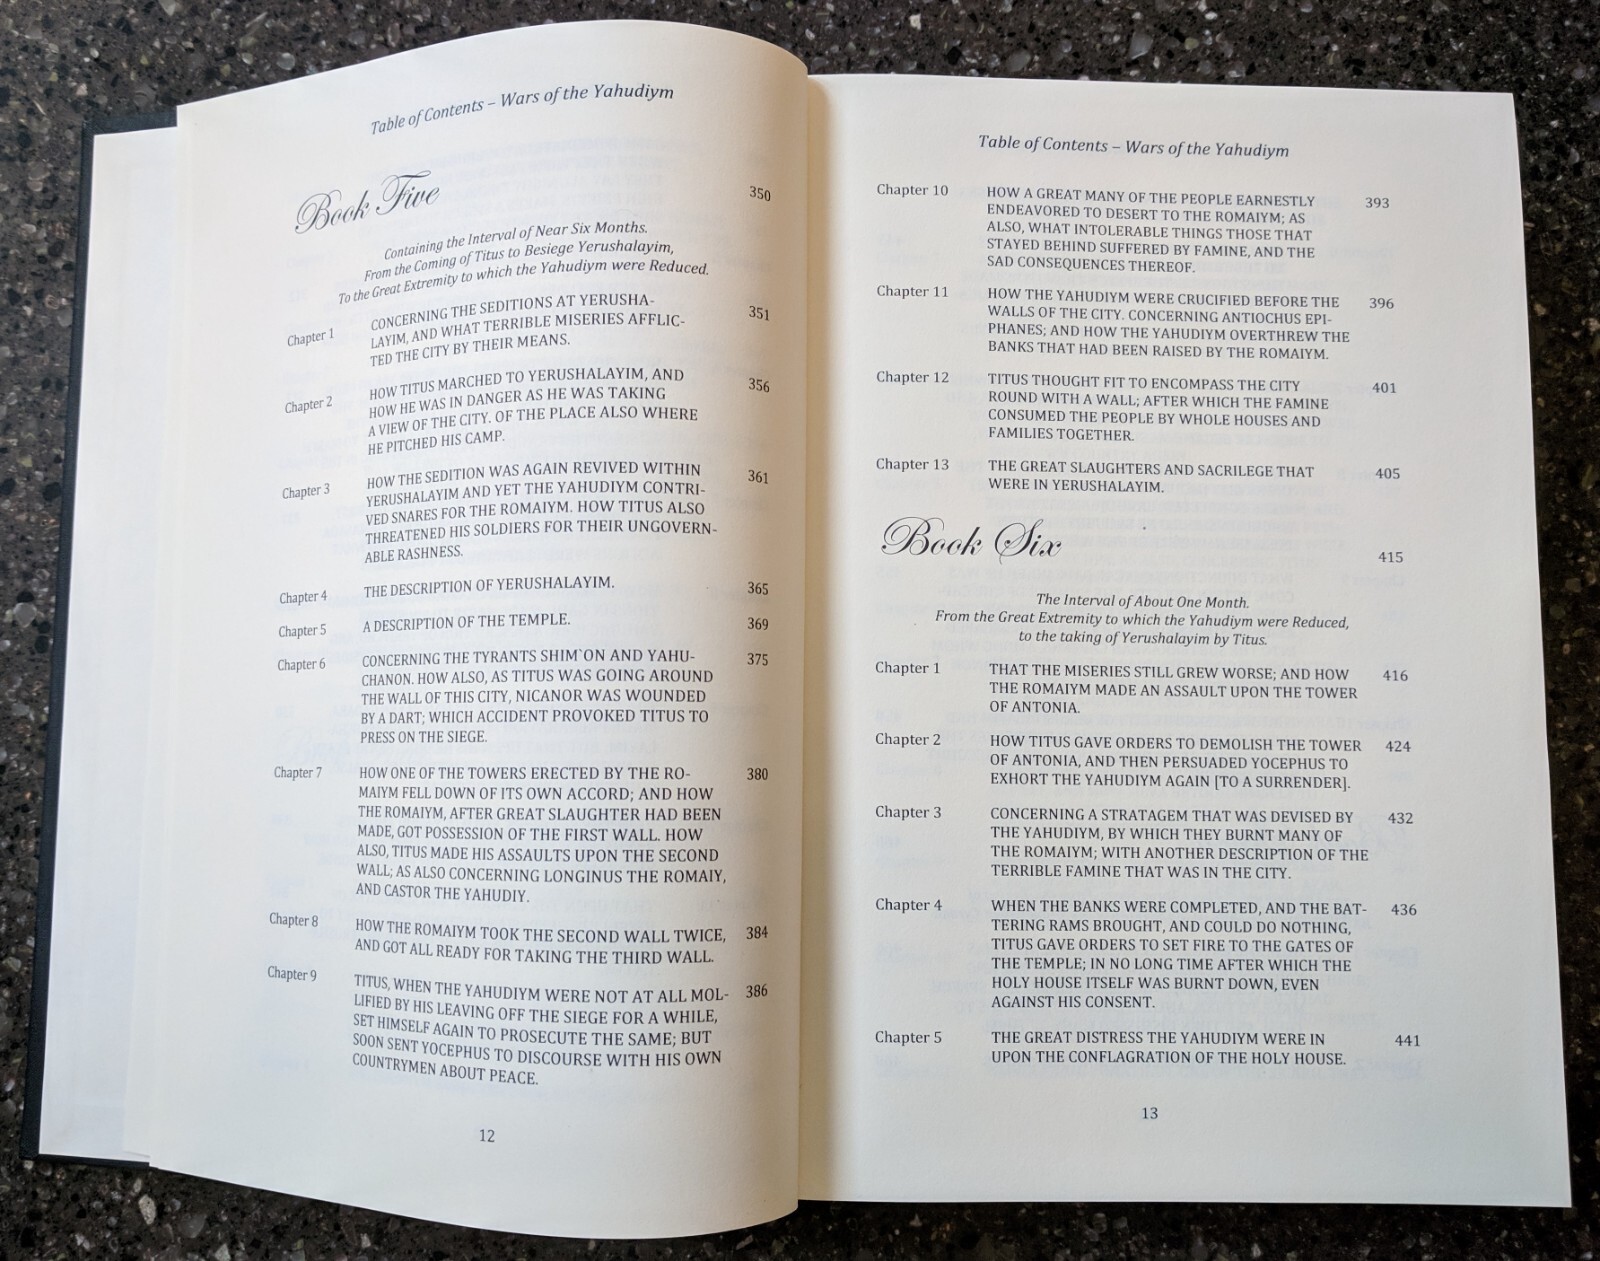 Table of Contents – Wars of the Yahudiym
Book Five 350
Containing the Interval of Near Six Months.
From the Coming of Titus to Besiege Yerushalayim,
To the Great Extremity to which the Yahudiym were Reduced.
Chapter 1 CONCERNING THE SEDITIONS AT YERUSHA- 351
LAYIM, AND WHAT TERRIBLE MISERIES AFFLIC-
TED THE CITY BY THEIR MEANS.
Chapter 2 HOW TITUS MARCHED TO YERUSHALAYIM, AND 356
HOW HE WAS IN DANGER AS HE WAS TAKING
A VIEW OF THE CITY. OF THE PLACE ALSO WHERE
HE PITCHED HIS CAMP.
Chapter 3 HOW THE SEDITION WAS AGAIN REVIVED WITHIN 361
YERUSHALAYIM AND YET THE YAHUDIYM CONTRI-
VED SNARES FOR THE ROMAIYM. HOW TITUS ALSO
THREATENED HIS SOLDIERS FOR THEIR UNGOVERN-
ABLE RASHNESS.
Chapter 4 THE DESCRIPTION OF YERUSHALAYIM. 365
Chapter 5 A DESCRIPTION OF THE TEMPLE. 369
Chapter 6 CONCERNING THE TYRANTS SHIM`ON AND YAHU- 375
CHANON. HOW ALSO, AS TITUS WAS GOING AROUND
THE WALL OF THIS CITY, NICANOR WAS WOUNDED
BY A DART; WHICH ACCIDENT PROVOKED TITUS TO
PRESS ON THE SIEGE.
Chapter 7 HOW ONE OF THE TOWERS ERECTED BY THE RO- 380
MAIYM FELL DOWN OF ITS OWN ACCORD; AND HOW
THE ROMAIYM, AFTER GREAT SLAUGHTER HAD BEEN
MADE, GOT POSSESSION OF THE FIRST WALL. HOW
ALSO, TITUS MADE HIS ASSAULTS UPON THE SECOND
WALL; AS ALSO CONCERNING LONGINUS THE ROMAIY,
AND CASTOR THE YAHUDIY.
Chapter 8 HOW THE ROMAIYM TOOK THE SECOND WALL TWICE, 384
AND GOT ALL READY FOR TAKING THE THIRD WALL.
Chapter 9 TITUS, WHEN THE YAHUDIYM WERE NOT AT ALL MOL- 386
LIFIED BY HIS LEAVING OFF THE SIEGE FOR A WHILE,
SET HIMSELF AGAIN TO PROSECUTE THE SAME; BUT
SOON SENT YOCEPHUS TO DISCOURSE WITH HIS OWN
COUNTRYMEN ABOUT PEACE.
12
Table of Contents – Wars of the Yahudiym
Chapter 10 HOW A GREAT MANY OF THE PEOPLE EARNESTLY 393
ENDEAVORED TO DESERT TO THE ROMAIYM; AS
ALSO, WHAT INTOLERABLE THINGS THOSE THAT
STAYED BEHIND SUFFERED BY FAMINE, AND THE
SAD CONSEQUENCES THEREOF.
Chapter 11 HOW THE YAHUDIYM WERE CRUCIFIED BEFORE THE 396
WALLS OF THE CITY. CONCERNING ANTIOCHUS EPI-
PHANES; AND HOW THE YAHUDIYM OVERTHREW THE
BANKS THAT HAD BEEN RAISED BY THE ROMAIYM.
Chapter 12 TITUS THOUGHT FIT TO ENCOMPASS THE CITY 401
ROUND WITH A WALL; AFTER WHICH THE FAMINE
CONSUMED THE PEOPLE BY WHOLE HOUSES AND
FAMILIES TOGETHER.
Chapter 13 THE GREAT SLAUGHTERS AND SACRILEGE THAT 405
WERE IN YERUSHALAYIM.
Book Six 415
The Interval of About One Month.
From the Great Extremity to which the Yahudiym were Reduced,
to the taking of Yerushalayim by Titus.
Chapter 1 THAT THE MISERIES STILL GREW WORSE; AND HOW 416
THE ROMAIYM MADE AN ASSAULT UPON THE TOWER
OF ANTONIA.
Chapter 2 HOW TITUS GAVE ORDERS TO DEMOLISH THE TOWER 424
OF ANTONIA, AND THEN PERSUADED YOCEPHUS TO
EXHORT THE YAHUDIYM AGAIN [TO A SURRENDER].
Chapter 3 CONCERNING A STRATAGEM THAT WAS DEVISED BY 432
THE YAHUDIYM, BY WHICH THEY BURNT MANY OF
THE ROMAIYM; WITH ANOTHER DESCRIPTION OF THE
TERRIBLE FAMINE THAT WAS IN THE CITY.
Chapter 4 WHEN THE BANKS WERE COMPLETED, AND THE BAT- 436
TERING RAMS BROUGHT, AND COULD DO NOTHING,
TITUS GAVE ORDERS TO SET FIRE TO THE GATES OF
THE TEMPLE; IN NO LONG TIME AFTER WHICH THE
HOLY HOUSE ITSELF WAS BURNT DOWN, EVEN
AGAINST HIS CONSENT.
Chapter 5 THE GREAT DISTRESS THE YAHUDIYM WERE IN 441
UPON THE CONFLAGRATION OF THE HOLY HOUSE.
13